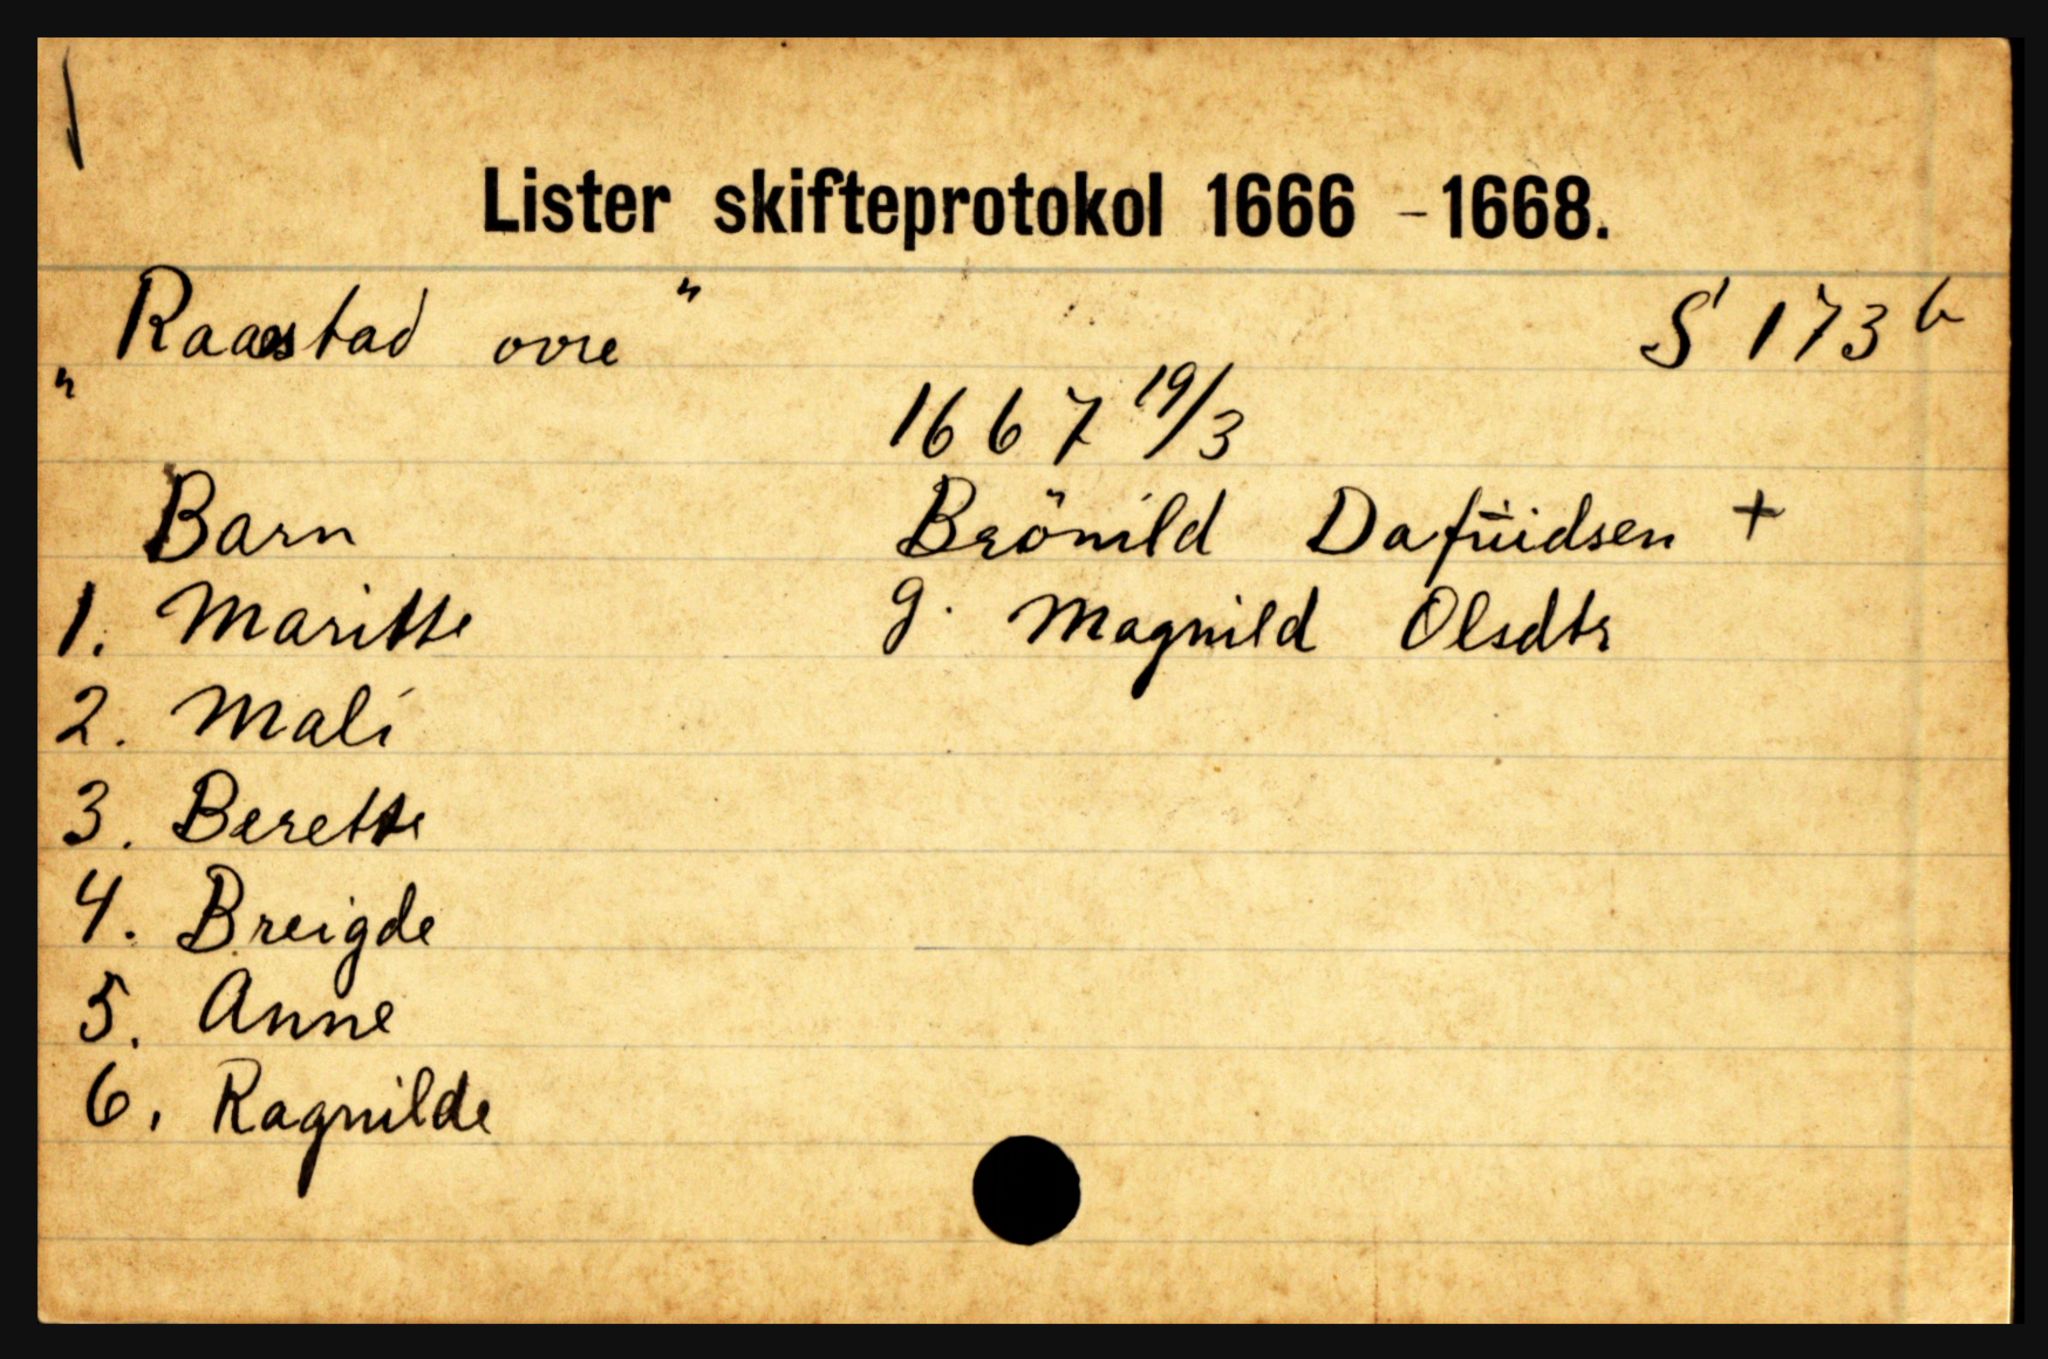 Lister skifteprotokol 1666 - 1668.
„ Raastad ovre " S 173 b
1667 19/3
Barn Brönild Dafüidsen +
1. Maritte g. Magnild Olsdtr
2. Mali
3. Berette
4. Breigde
5. Anne
6. Ragnilde